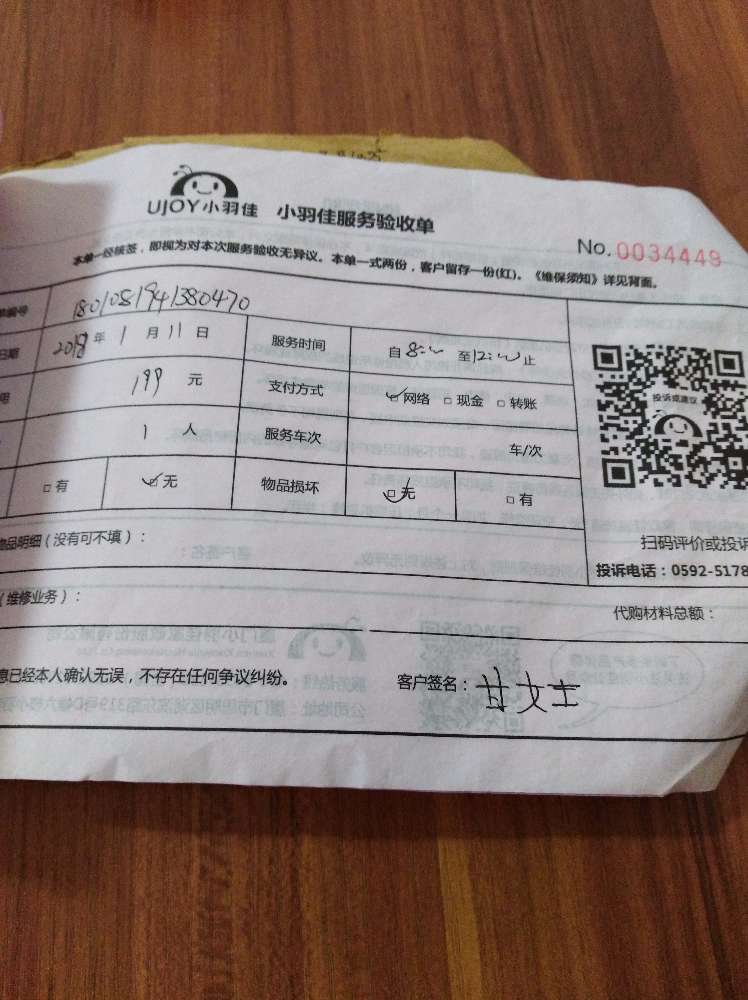 UJOY小羽佳 小羽佳服务验收单
No.0034449
本单一经核签，即视为对本次服务验收无异议。本单一式两份，客户留存一份(红)。《维保须知》详见背面。
编号 1801081941380470
日期 2018年1月11日 服务时间 自8: 至12: 止
199元 支付方式 网络 现金 转账
1人 服务车次 车/次
有 无 物品损坏 无 有
投诉或建议
品明细（没有可不填）：
扫码评价或投诉
投诉电话：0592-5178
（维修业务）：
代购材料总额：
息已经本人确认无误，不存在任何争议纠纷。 客户签名：甘女士